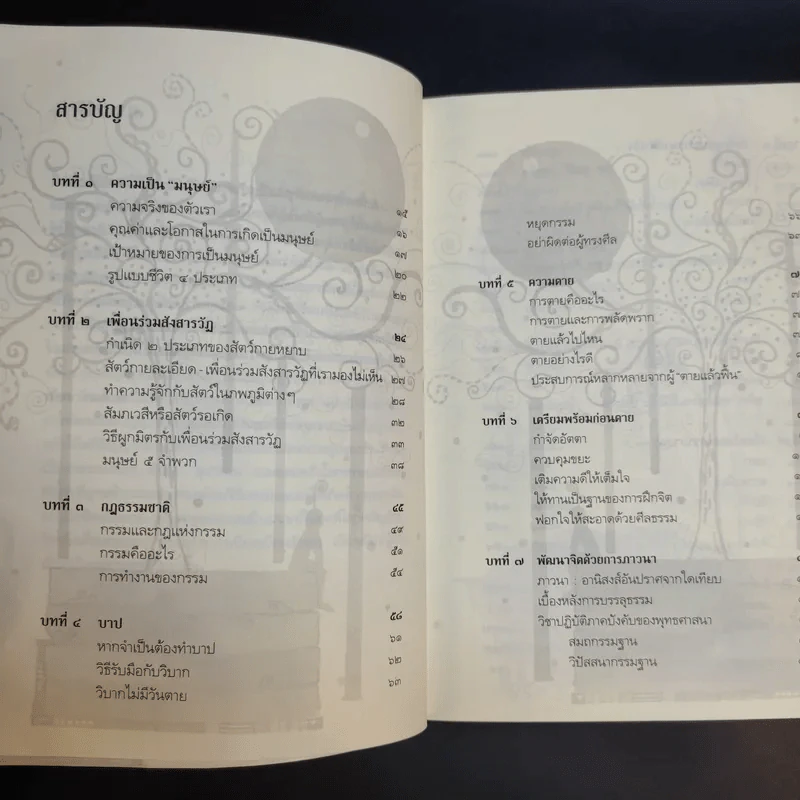 สารบัญ
บทที่ ๑ ความเป็น “มนุษย์” ๑๕
ความจริงของตัวเรา ๑๖
คุณค่าและโอกาสในการเกิดเป็นมนุษย์ ๑๗
เป้าหมายของการเป็นมนุษย์ ๒๐
รูปแบบชีวิต ๔ ประเภท ๒๒
บทที่ ๒ เพื่อนร่วมสังสารวัฏ ๒๔
กำเนิด ๒ ประเภทของสัตว์กายหยาบ ๒๖
สัตว์กายละเอียด - เพื่อนร่วมสังสารวัฏที่เรามองไม่เห็น ๒๗
ทำความรู้จักกับสัตว์ในภพภูมิต่างๆ ๒๘
สัมภเวสีหรือสัตว์รอเกิด ๓๒
วิธีผูกมิตรกับเพื่อนร่วมสังสารวัฏ ๓๓
มนุษย์ ๕ จำพวก ๓๘
บทที่ ๓ กฎธรรมชาติ ๔๕
กรรมและกฎแห่งกรรม ๔๙
กรรมคืออะไร ๕๑
การทำงานของกรรม ๕๔
บทที่ ๔ บาป ๕๘
หากจำเป็นต้องทำบาป ๖๑
วิธีรับมือกับวิบาก ๖๒
วิบากไม่มีวันตาย ๖๓
หยุดกรรม ๖๖
อย่าผิดต่อผู้ทรงศีล ๖๗
บทที่ ๕ ความตาย
การตายคืออะไร
การตายและการพลัดพราก
ตายแล้วไปไหน
ตายอย่างไรดี
ประสบการณ์หลากหลายจากผู้ “ตายแล้วฟื้น”
บทที่ ๖ เตรียมพร้อมก่อนตาย
กำจัดอัตตา
ควบคุมขยะ
เติมความดีให้เต็มใจ
ให้ทานเป็นฐานของการฝึกจิต
ฟอกใจให้สะอาดด้วยศีลธรรม
บทที่ ๗ พัฒนาจิตด้วยการภาวนา
ภาวนา : อานิสงส์อันปราศจากใดเทียบ
เบื้องหลังการบรรลุธรรม
วิชาปฏิบัติภาคบังคับของพุทธศาสนา
สมถกรรมฐาน
วิปัสสนากรรมฐาน